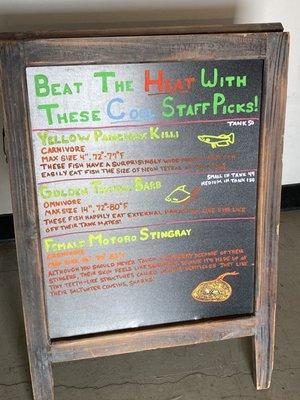 Beat The Heat With
These Cool Staff Picks!
Yellow Panchax Killi
Tank 50
Carnivore
Max Size 4", 72°-79°F
These fish have a surprisingly wide
easily eat fish the size of neon tetras
Golden Barb
Small in Tank 49
Medium in Tank 150
Omnivore
Max Size 14", 72°-80°F
These fish happily eat external like
off their tank mates!
Female Motoro Stingray
Carnivore
Max Size
Although you should never touch because of their
stingers, their skin feels like because it's made up of
tiny teeth-like structures called just like
their saltwater cousins, sharks.